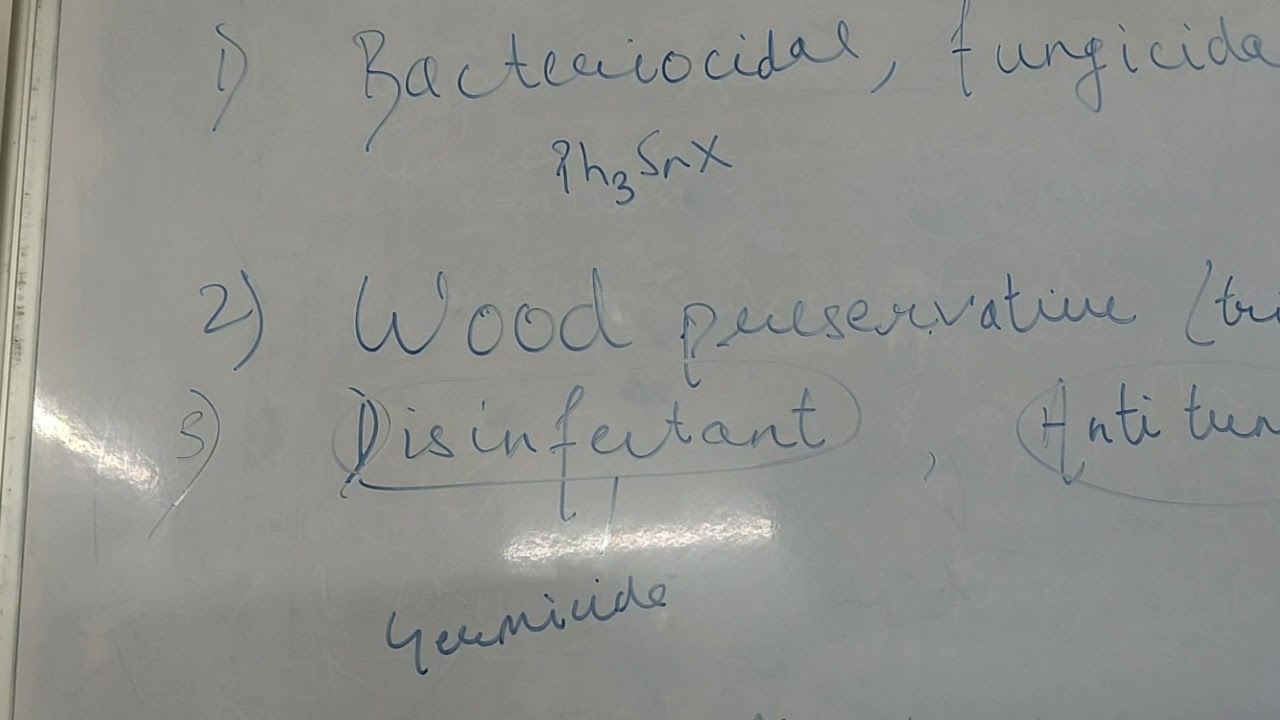 1) Bacteriocidal, fungicida
Ph3SnX
2) Wood preservative (tri
3) Disinfectant, Anti tum
Germicide